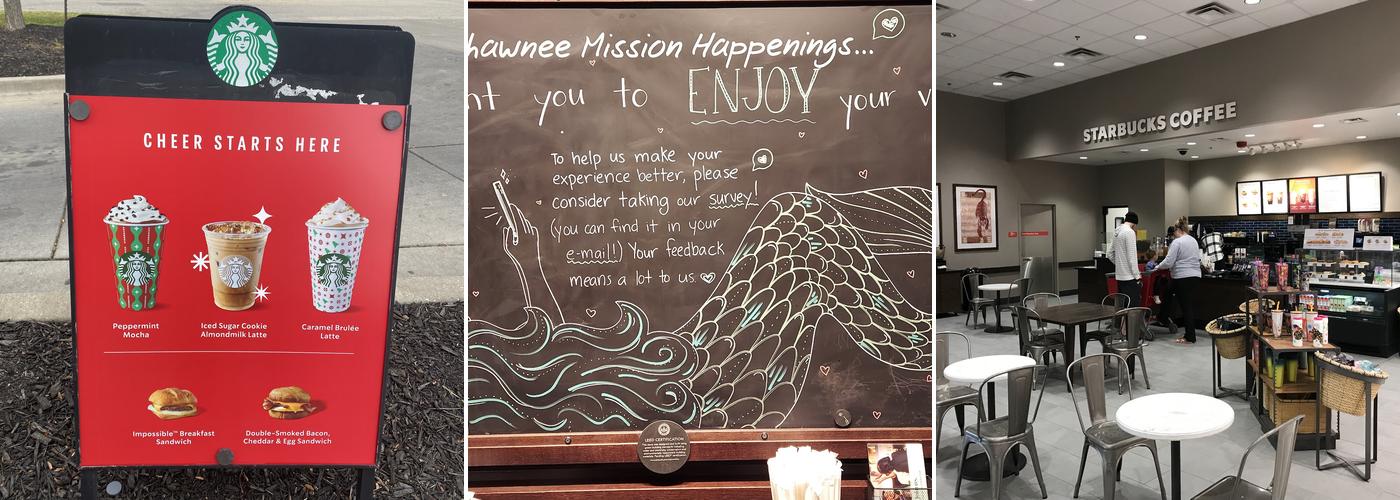 CHEER STARTS HERE
Peppermint
Mocha
Iced Sugar Cookie
Almondmilk Latte
Caramel Brulée
Latte
Impossible™ Breakfast
Sandwich
Double-Smoked Bacon,
Cheddar & Egg Sandwich
hawnee Mission Happenings...
nt you to ENJOY your v
To help us make your
experience better, please
consider taking our survey!
(you can find it in your
e-mail!) Your feedback
means a lot to us.
LEED CERTIFICATION
STARBUCKS COFFEE